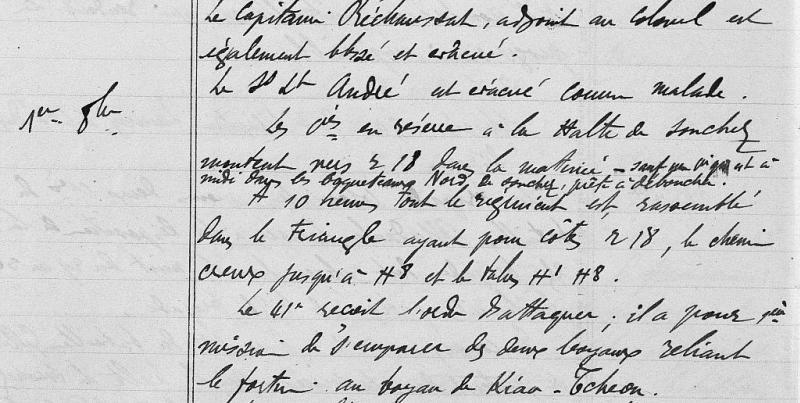 Le Capitaine Réchaussat, adjoint au Colonel est
également blessé et évacué.
Le S/Lt André est évacué comme malade.
1er 8bre
Les Cies en réserve à la Halte de Souchez
montent vers R 18 dans la matinée - sauf
midi dans les boqueteaux Nord de Souchez, prête à déboucher.
A 10 heures tout le régiment est rassemblé
dans le triangle ayant pour côtés R 18, le chemin
creux jusqu'à H8 et le talus H1 H8.
Le 41e reçoit l'ordre d'attaquer ; il a pour
mission de s'emparer des deux boyaux reliant
le fortin au boyau de Kiao-Tchéou.